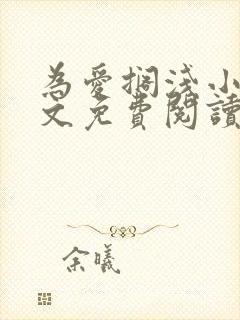 為愛搁淺小
文免費閱讀
余曦